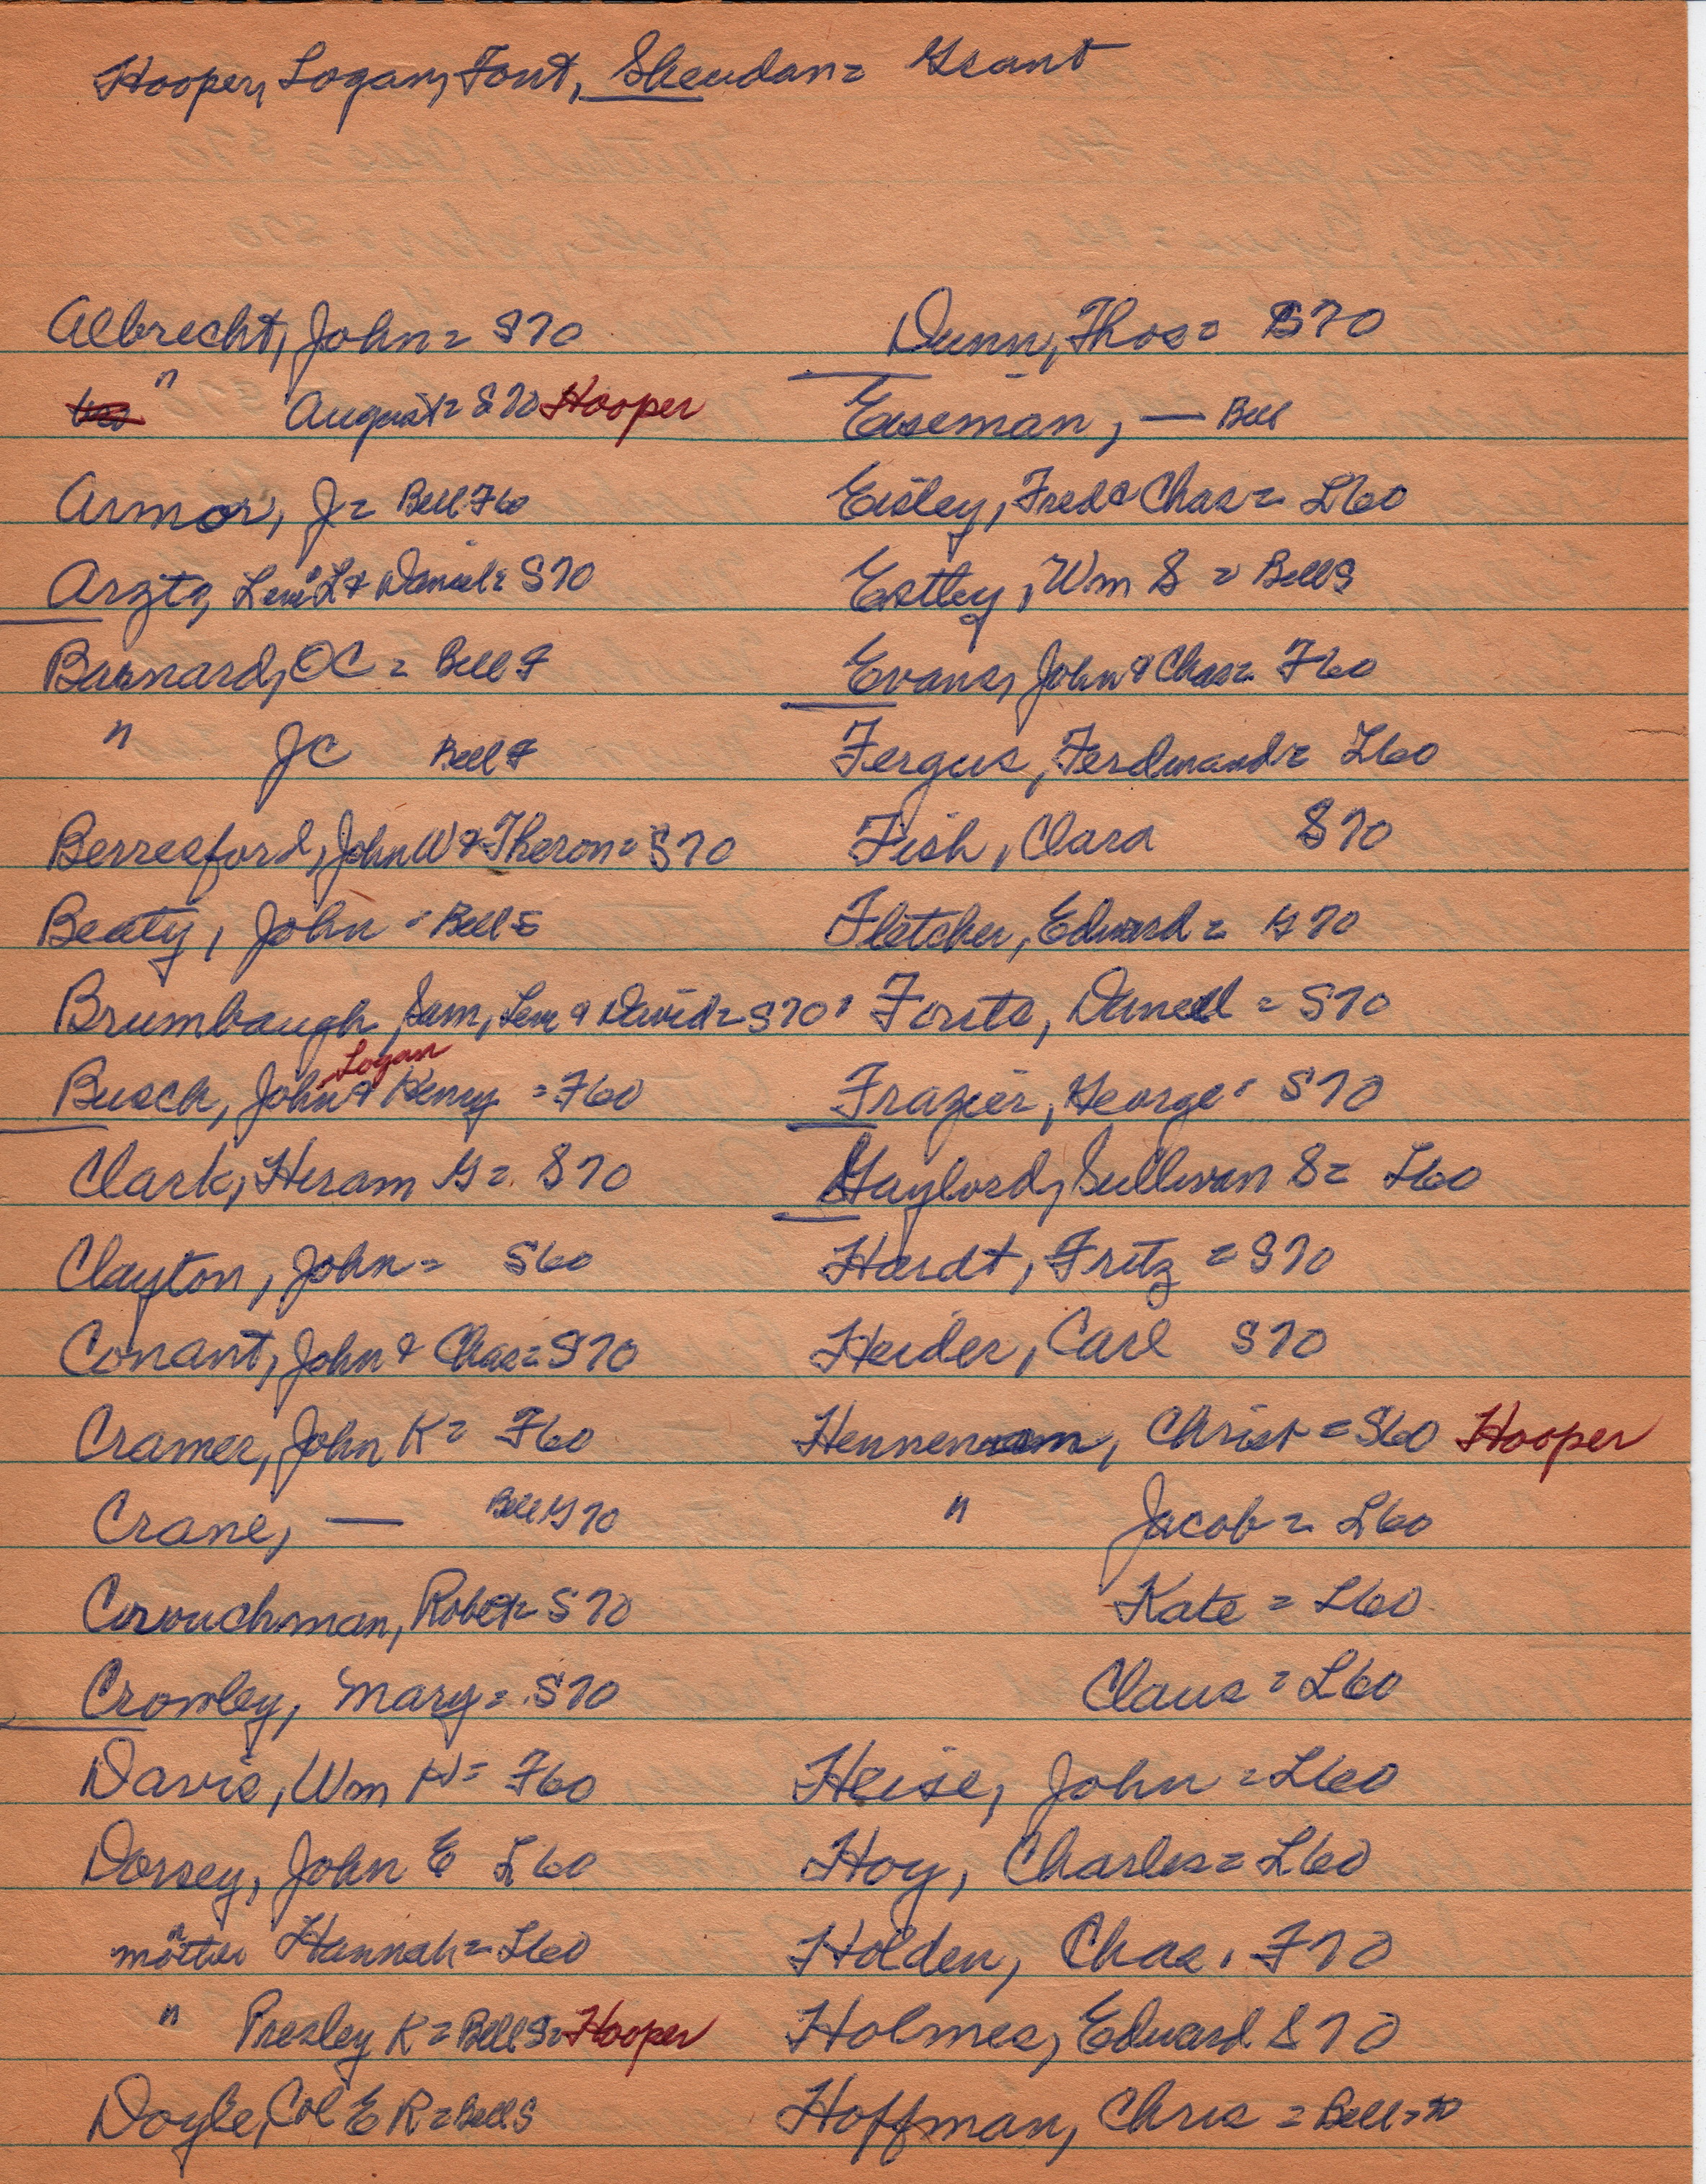 Hooper, Logan, Font, Sheridan = Grant
Albrecht, John = S70
" August = S70 Hooper
Armor, J = Bell F60
Arzts, Levi L & Daniel = S70
Barnard, OC = Bell F
" JC Bell F
Berresford, John W & Theron = S70
Beaty, John = Bell
Brumbaugh Sam, Levi & David = S70
Logan
Busch, John & Henry = F60
Clark, Hiram G = S70
Clayton, John = S60
Conant, John & Chas = S70
Cramer, John K = F60
Crane, — Bell G70
Crouchman, Robet = S70
Cromley, Mary = S70
Davis, Wm H = F60
Dorsey, John E L60
" mother Hannah = L60
" Presley K = Bell S = Hooper
Doyle, Col E R = Bell S
Dunn, Thos = S70
Eiseman, — Bell
Eisley, Fred & Chas = L60
Estley, Wm S = Bell S
Evans, John & Chas = F60
Fergus, Ferdinand = L60
Fish, Clara S70
Fletcher, Edward = G70
Fouts, Daniel = S70
Frazier, George = S70
Gaylord, Sullivan S = L60
Hardt, Fritz = S70
Heider, Carl S70
Henneman, Christ = S60 Hooper
" Jacob = L60
Kate = L60
Claus = L60
Heise, John = L60
Hoy, Charles = L60
Holden, Chas. F70
Holmes, Edward S70
Hoffman, Chris = Bell = 70